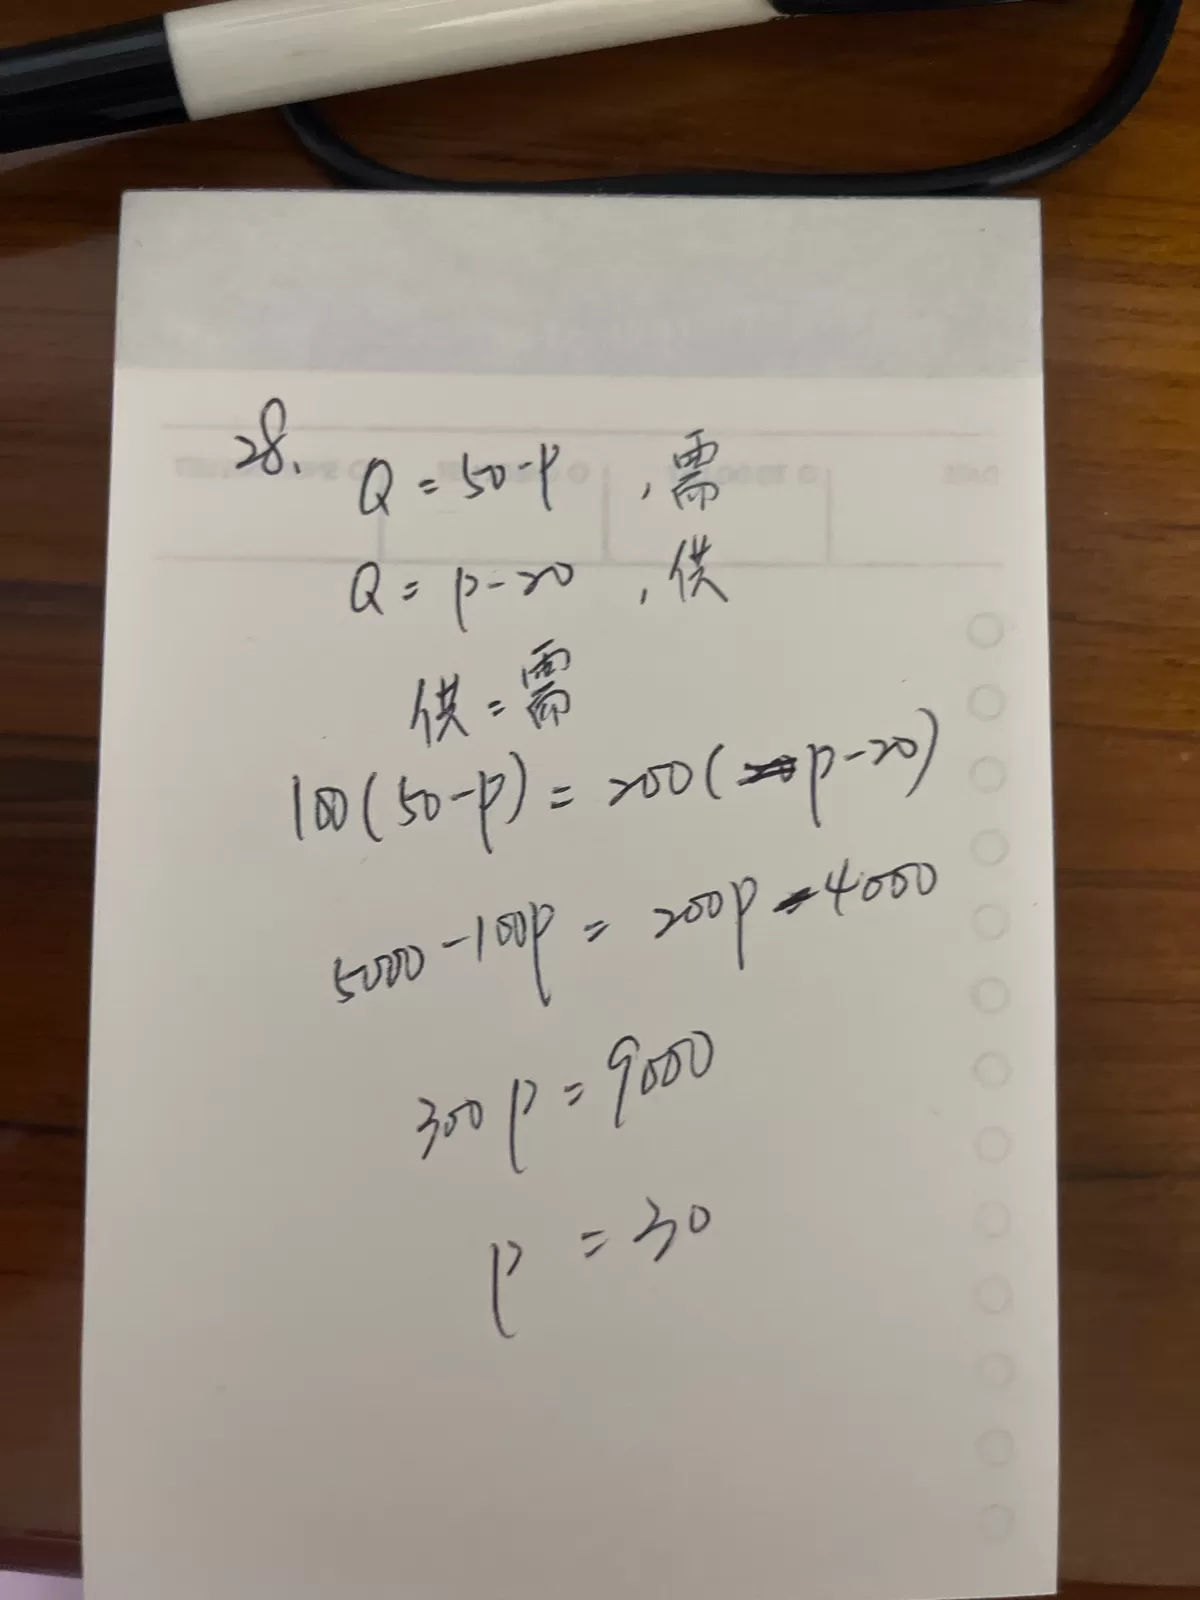 28.
Q = 50-p , 需
Q = p-20 , 供
供 = 需
100(50-p) = 200(p-20)
5000-100p = 200p-4000
300p = 9000
p = 30